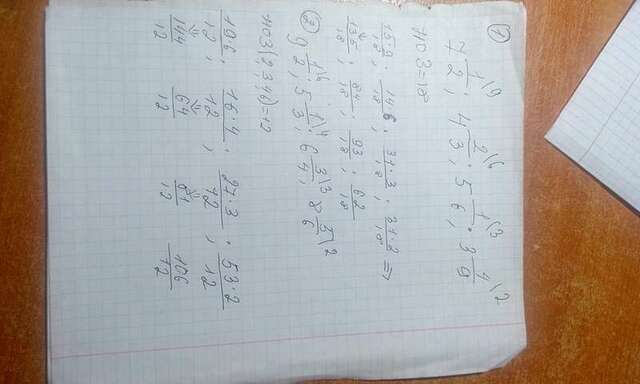 ①
7 1/2 \9 ; 4 2/3 \6 ; 5 1/6 \3 ; 3 4/9 \2
НОЗ=18
15·9/18 ; 14·6/18 ; 31·3/18 ; 31·2/18 =>
135/18 ; 84/18 ; 93/18 ; 62/18
②
9 1/2 \6 ; 5 1/3 \4 ; 6 3/4 \3 ; 8 5/6 \2
НОЗ(2;3;4;6)=12
19·6/12 ; 16·4/12 ; 27·3/12 ; 53·2/12
144/12 64/12 81/12 106/12